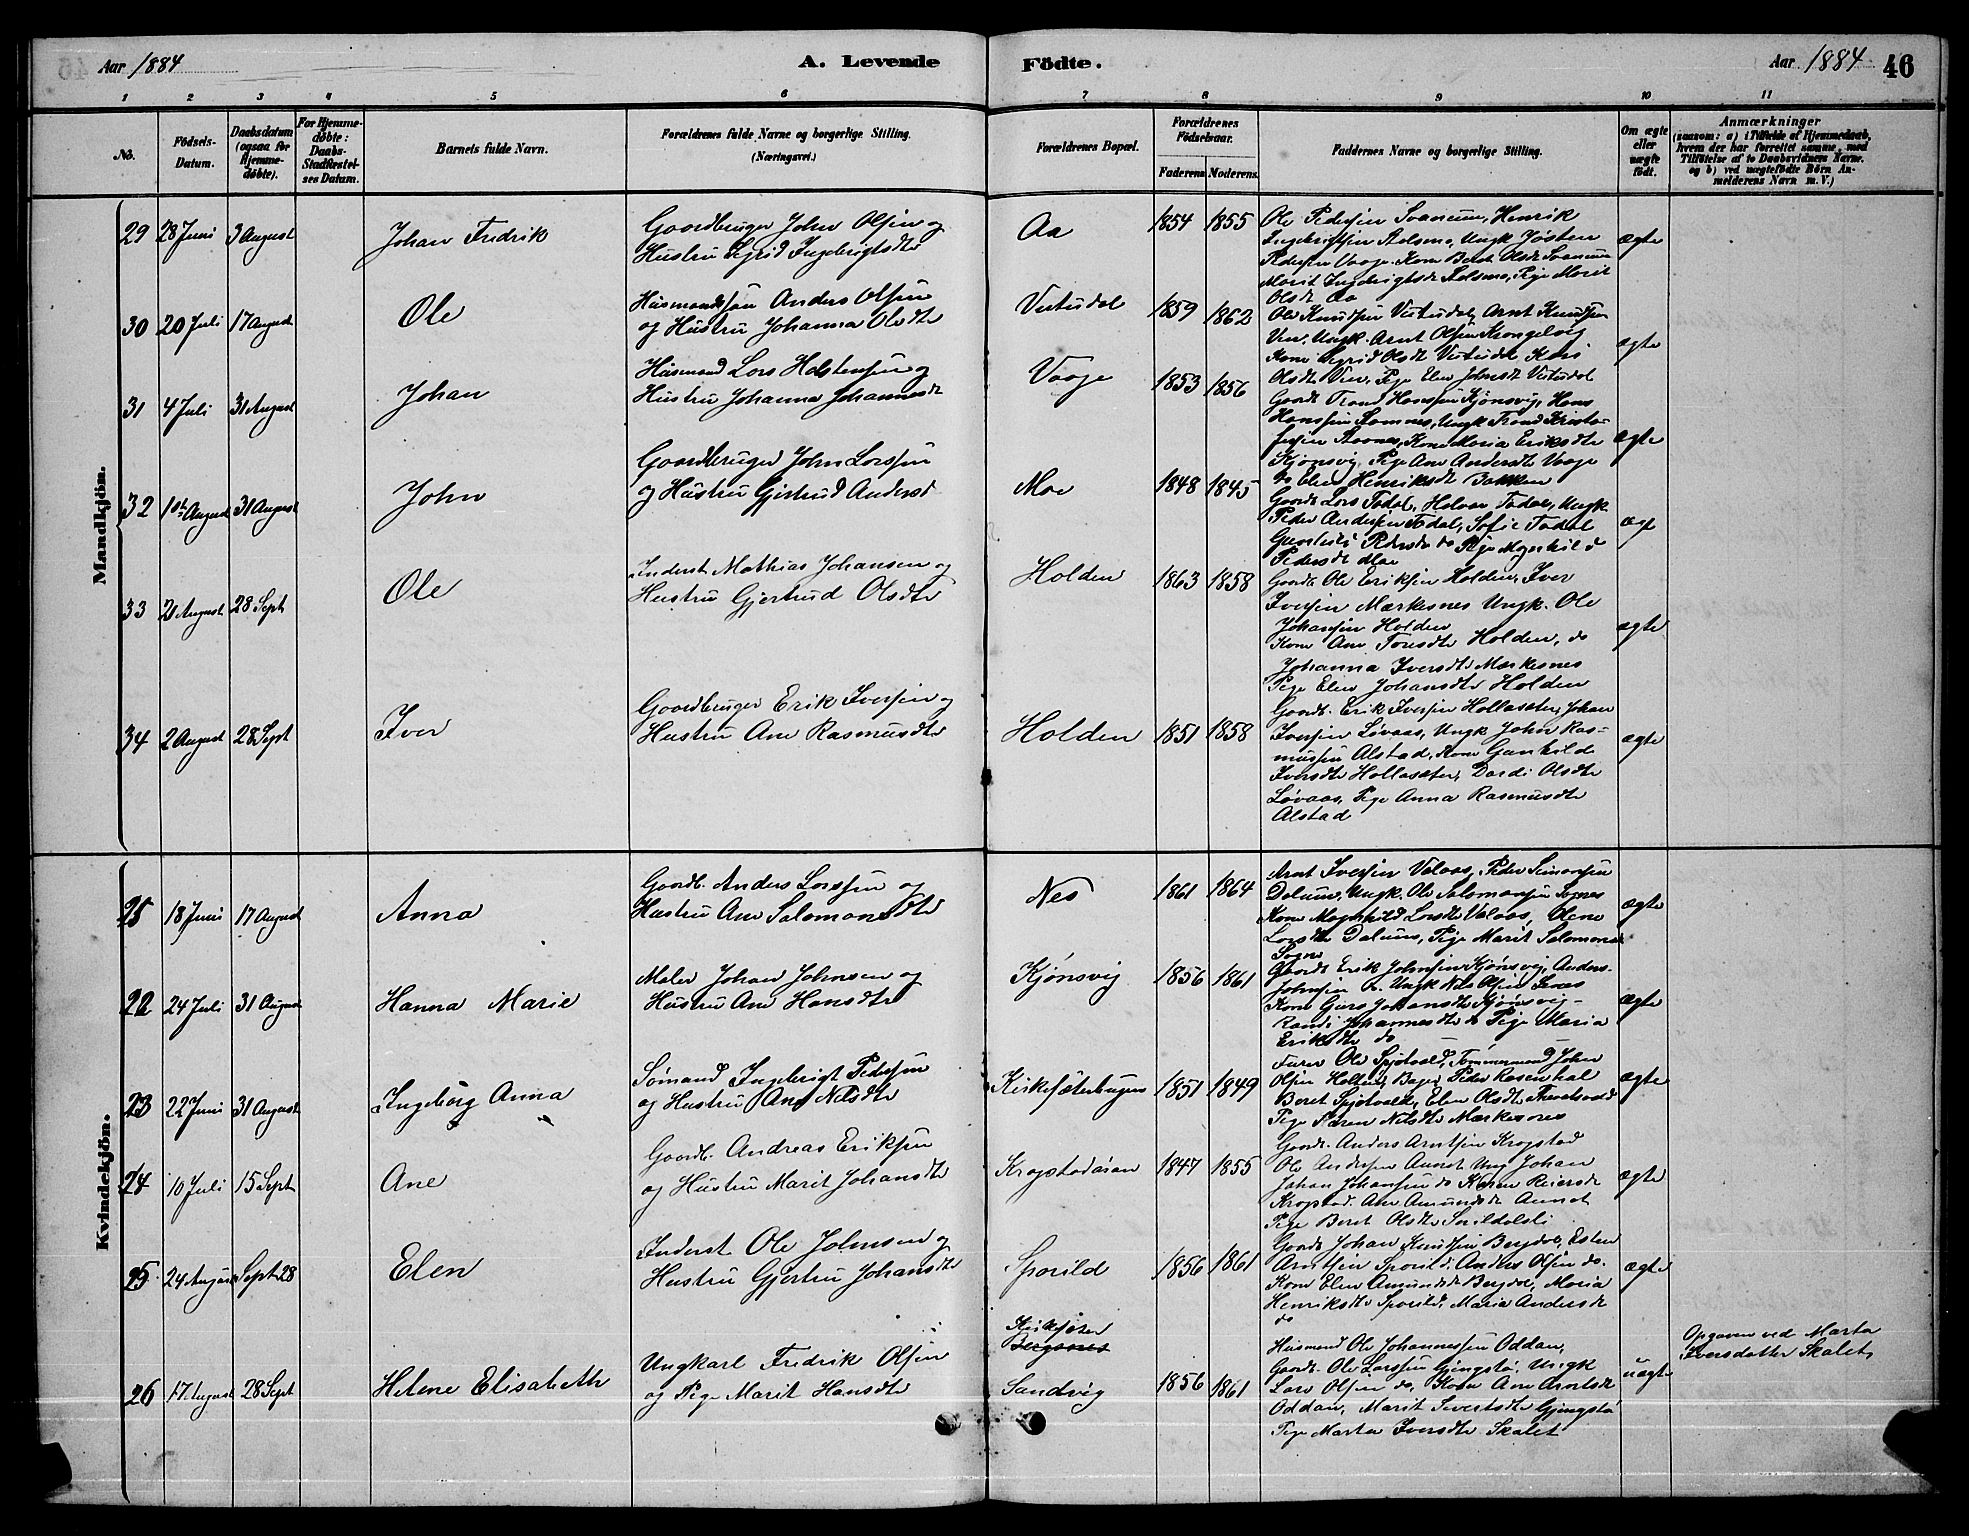 Aar 1884
A. Levende
Födte.
Aar 1884
46
1 2 3 4 5 6 7 8 9 10 11
No.
Födsels-Datum.
Daabsdatum (ogsaa for Hjemmedøbte).
For Hjemmedøbte: Daabs-Stadfæstelses Datum.
Barnets fulde Navn.
Forældrenes fulde Navne og borgerlige Stilling. (Næringsvei.)
Forældrenes Bopæl.
Forældrenes Födselsaar.
Faderens Moderens
Faddernes Navne og borgerlige Stilling.
Om ægte eller uægte født.
Anmærkninger
(saasom: a) i Tilfælde af Hjemmedaab,
hvem der har forrettet samme, med
Tilføielse af to Daabsvidners Navne.
og b) ved uægtefødte Börn An-
melderens Navn m. V.)
Mandkjön.
29 28 Juni 3 August
Johan Fredrik
Gaardbruger John Olsen og
Hustru Sigrid Ingebrigtsdtr
Aa
1854 1855
Ole Pedersen Svanum, Henrik
Ingebrigtsen Aalsmo, Ungk Jøsten
Pedersen Vaage. Kone Beret Olsdt Svanum
Marit Ingebrigtsdt Aalsmo, Pige Marit
Olsdt Aa
ægte
30 20 Juli 17 August
Ole
Husmandssøn Anders Olsen
og Hustru Johanna Olsdtr
Vistudal
1859 1862
Ole Knudsen Vistudal, Arnt Knudsen
Vin, Ungk. Arnt Olsen
Kone Sigrid Olsdt Vistudal Kari
Olsdtr Vin, Pige Elen Johnsdt Vistudal
ægte
31 4 Juli 31 August
Johan
Husmand Lars Holstensen og
Hustru Johanna Johannesdt
Vaage
1853 1856
Gaardb Trond Hansen Kjønsvig, Hans
Hansen Stamnes, Ungk Trond Kristo-
fersen Stamnes, Kone Maria Eriksdtr
Kjønsvig, Pige Ane Andersdtr Vaage
do Elen Henriksdt Bakken
ægte
32 10de August 31 August
John
Gaardbruger John Larssen
og Hustru Gjertrud Andersd
Moe
1848 1845
Gaardb Lars Todal, Halvor Todal, Ungk
Peder Andersen Todal, Sofie Todal
Pedersdt do Pige Magnhild
Pedersdt Moe
ægt
33 21 August 28 Sept
Ole
Inderst Mathias Johansen og
Hustru Gjertrud Olsdtr
Holden
1863 1858
Gaardb Ole Eriksen Holden, Iver
Iversen Mærkesnes Ungk. Ole
Johansen Holden
Kone Ane Toresdtr Holden, do
Johanna Iversdtr Mærkesnes
Pige Elen Johansdtr Holden
ægte
34 2 August 28 Sept
Iver
Gaardbruger Erik Iversen og
Hustru Ane Rasmusdtr
Holden
1851 1858
Gaardb. Erik Iversen Hollasæter, Johan
Iversen Løvaas, Ungk John Ras-
mussen Alstad, Kone Gunhild
Iversdtr Hollasæter, Dordi Olsdtr
Løvaas, Pige Anna Rasmusdtr
Alstad
ægte
Kvindekjön.
25 18 Juni 17 August
Anna
Gaardb. Anders Larssen og
Hustru Ane Salomonsdtr
Nes
1861 1864
Arnt Iversen Valaas, Peder Simonsen
Dalum, Ungk. Ole Salomonsen Sognes
Kone Magnhild Larsdtr Valaas, Olene
Larsdtr Dalum, Pige Marit Salomons
ægte
22 24 Juli 31 August
Hanna Marie
Maler Johan Johnsen og
Hustru Ane Hansdtr
Kjønsvig
1856 1861
Gaardb Erik Johnsen Kjønsvig, Anders
Johnsen do. Ungk Nils Olsen
Kone Guro Johansdtr Kjønsvig -
Randi Johannesdtr do Pige Maria
Eriksdtr do
ægte
23 22 Juni 31 August
Ingeborg Anna
Sømand Ingebrigt Pedersen
og Hustru Ane Nilsdtr
Kirkesæterbugen
1851 1849
Furer Ole Spjotvold, Tømmermand John
Olsen Hollen, Bager Peder Rosendal
Beret Spjotvold, Elen Olsdt
Pige Karen Nilsdtr Mærkesnes
ægte
24 10 Juli 15 Sept
Ane
Gaardb. Andreas Eriksen
og Hustru Marit Johansdtr
Krogstadaøien
1847 1855
Gaardb. Anders Arntsen Krogstad
Ole Andersen Aunet Ung Johan
Johan Johansen do Karen Reiersdt
Krogstad. Ane Amundsdt Aunet
Pige Beret Olsdtr
ægte
25 24 August Sept 28
Elen
Inderst Ole Johnsen og
Hustru Gjertru Johansdtr
Sporild
1856 1861
Gaardb Johan Knudsen Bergdal, Esten
Arntsen Sporild. Anders Olsen do.
Kone Elen Amundsdt Bergdal, Maria
Henriksdtr Sporild. Maria Andersdt
do
ægte
26 17 August 28 Sept
Helene Elisabeth
Ungkarl Fredrik Olsen
og Pige Marit Hansdtr
Kirkesæter
Bergsnes
Sandvig
1856 1861
Husmand Ole Johannessen Oddan,
Gaardb. Ole Larssen Gjengstø, Ungk
Lars Olsen do, Kone Ane Arntsdt
Oddan, Marit Sivertsdtr Gjengstø
Pige Marta Iversdtr Skalet
uægte
Opgaven ved Marta
Iversdatter Skalet,